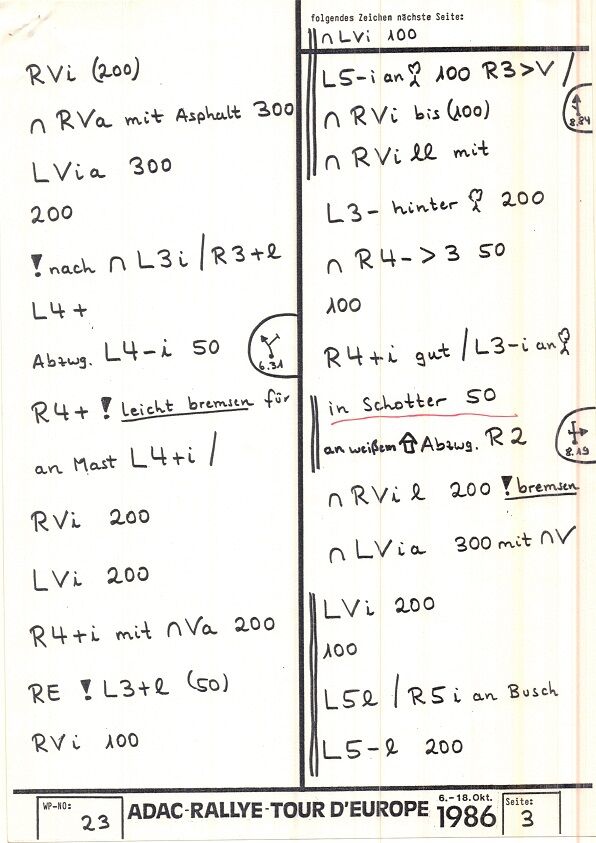 RVi (200)
∩ RVa mit Asphalt 300
LVia 300
200
! nach ∩ L3i / R3+l
L4+
Abzwg. L4-i 50
6.31
R4+ ! Leicht bremsen für
an Mast L4+i /
RVi 200
LVi 200
R4+i mit ∩Va 200
RE ! L3+l (50)
RVi 100
folgendes Zeichen nächste Seite:
∩ LVi 100
L5-i an 100 R3>V /
∩ RVi bis (100)
8.84
∩ RVi ll mit
L3- hinter 200
∩ R4->3 50
100
R4+i gut / L3-i an
in Schotter 50
an weißem ⇧ Abzwg. R2
8.19
∩ RVi l 200 ! bremsen
∩ LVia 300 mit ∩V
LVi 200
100
L5l / R5i an Busch
L5-l 200
WP-NO: 23
ADAC-RALLYE-TOUR D'EUROPE 6.-18.Okt. 1986
Seite: 3